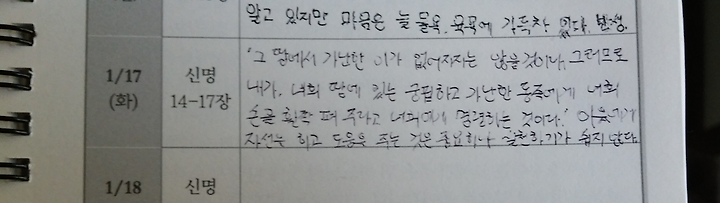 알고 있지만 마음은 늘 물욕, 육욕에 가득차 있다. 반성.
1/17
(화)
신명
14-17장
'그 땅에서 가난한 이가 없어지지는 않을 것이다. 그러므로
내가, 너희 땅에 있는 궁핍하고 가난한 동족에게 너희
손을 활짝 펴 주라고 너희에게 명령하는 것이다.' 이웃에게
자선을 하고 도움을 주는 것은 중요하나 실천하기가 쉽지 않다.
1/18
신명